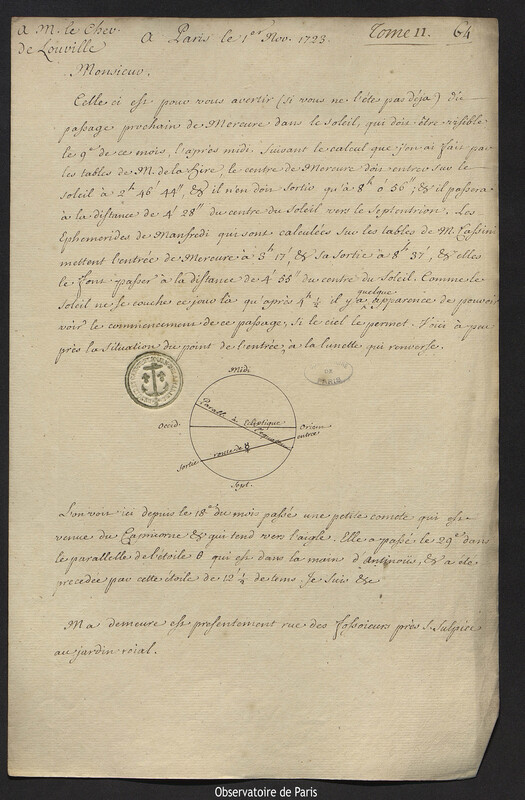 A M. le Chev. de Louville
A Paris le 1er Nov. 1723.
Tome 11. 64
Monsieur.
Celle ci est pour vous avertir (si vous ne l'ête pas déja) du
passage prochain de Mercure dans le Soleil, qui doit être visible
le 9e de ce mois, l'apres midi. Suivant le calcul que j'en ai fait par
les tables de M. de la Hire, le centre de Mercure doit entrer sur le
soleil à 2h 46' 44", & il n'en doit sortir qu'à 8h 0' 56"; & il passera
à la distance de 4' 28" du centre du Soleil vers le Septentrion. Les
Ephemerides de Manfredi qui sont calculées sur les tables de M. Cassini
mettent l'entrée de Mercure à 3h 17', & sa sortie à 8h 37', & elles
le font passer à la distance de 4' 55" du centre du Soleil. Comme le
Soleil ne se couche ce jour là qu'après 4h ½ il y a quelque apparence de pouvoir
voir le commencement de ce passage, si le ciel le permet. Voici à peu
près la situation du point de l'entrée, à la lunette qui renverse.
Midi
Parall. à l'équateur
Occid.
Ecliptique
Orient
entrée
route de ☿
sortie
Sept.
L'on voit ici depuis le 18e du mois passé une petite comete qui est
venue du Capricorne & qui tend vers l'aigle. Elle a passé le 29e dans
le parallelle de l'étoile θ qui est dans la main d'Antinoüs, & a été
precedée par cette étoile de 12' ¼ de tems. Je suis &c
Ma demeure est presentement rue des fossoieurs près S. Sulpice
au jardin roial.
Observatoire de Paris